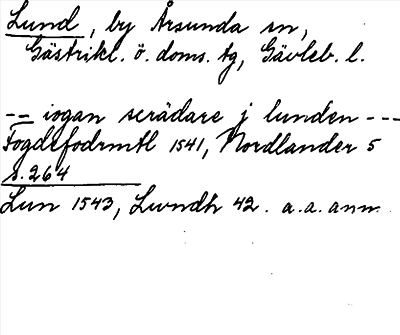 Lund, by Årsunda sn,
Gästrikl. ö. doms. tg, Gävleb. l.
-- iogan scrädare j lunden ---
Fogdefodrmtl 1541, Nordlander 5
s. 264
Lun 1543, Lwndh 42. a.a. anm.